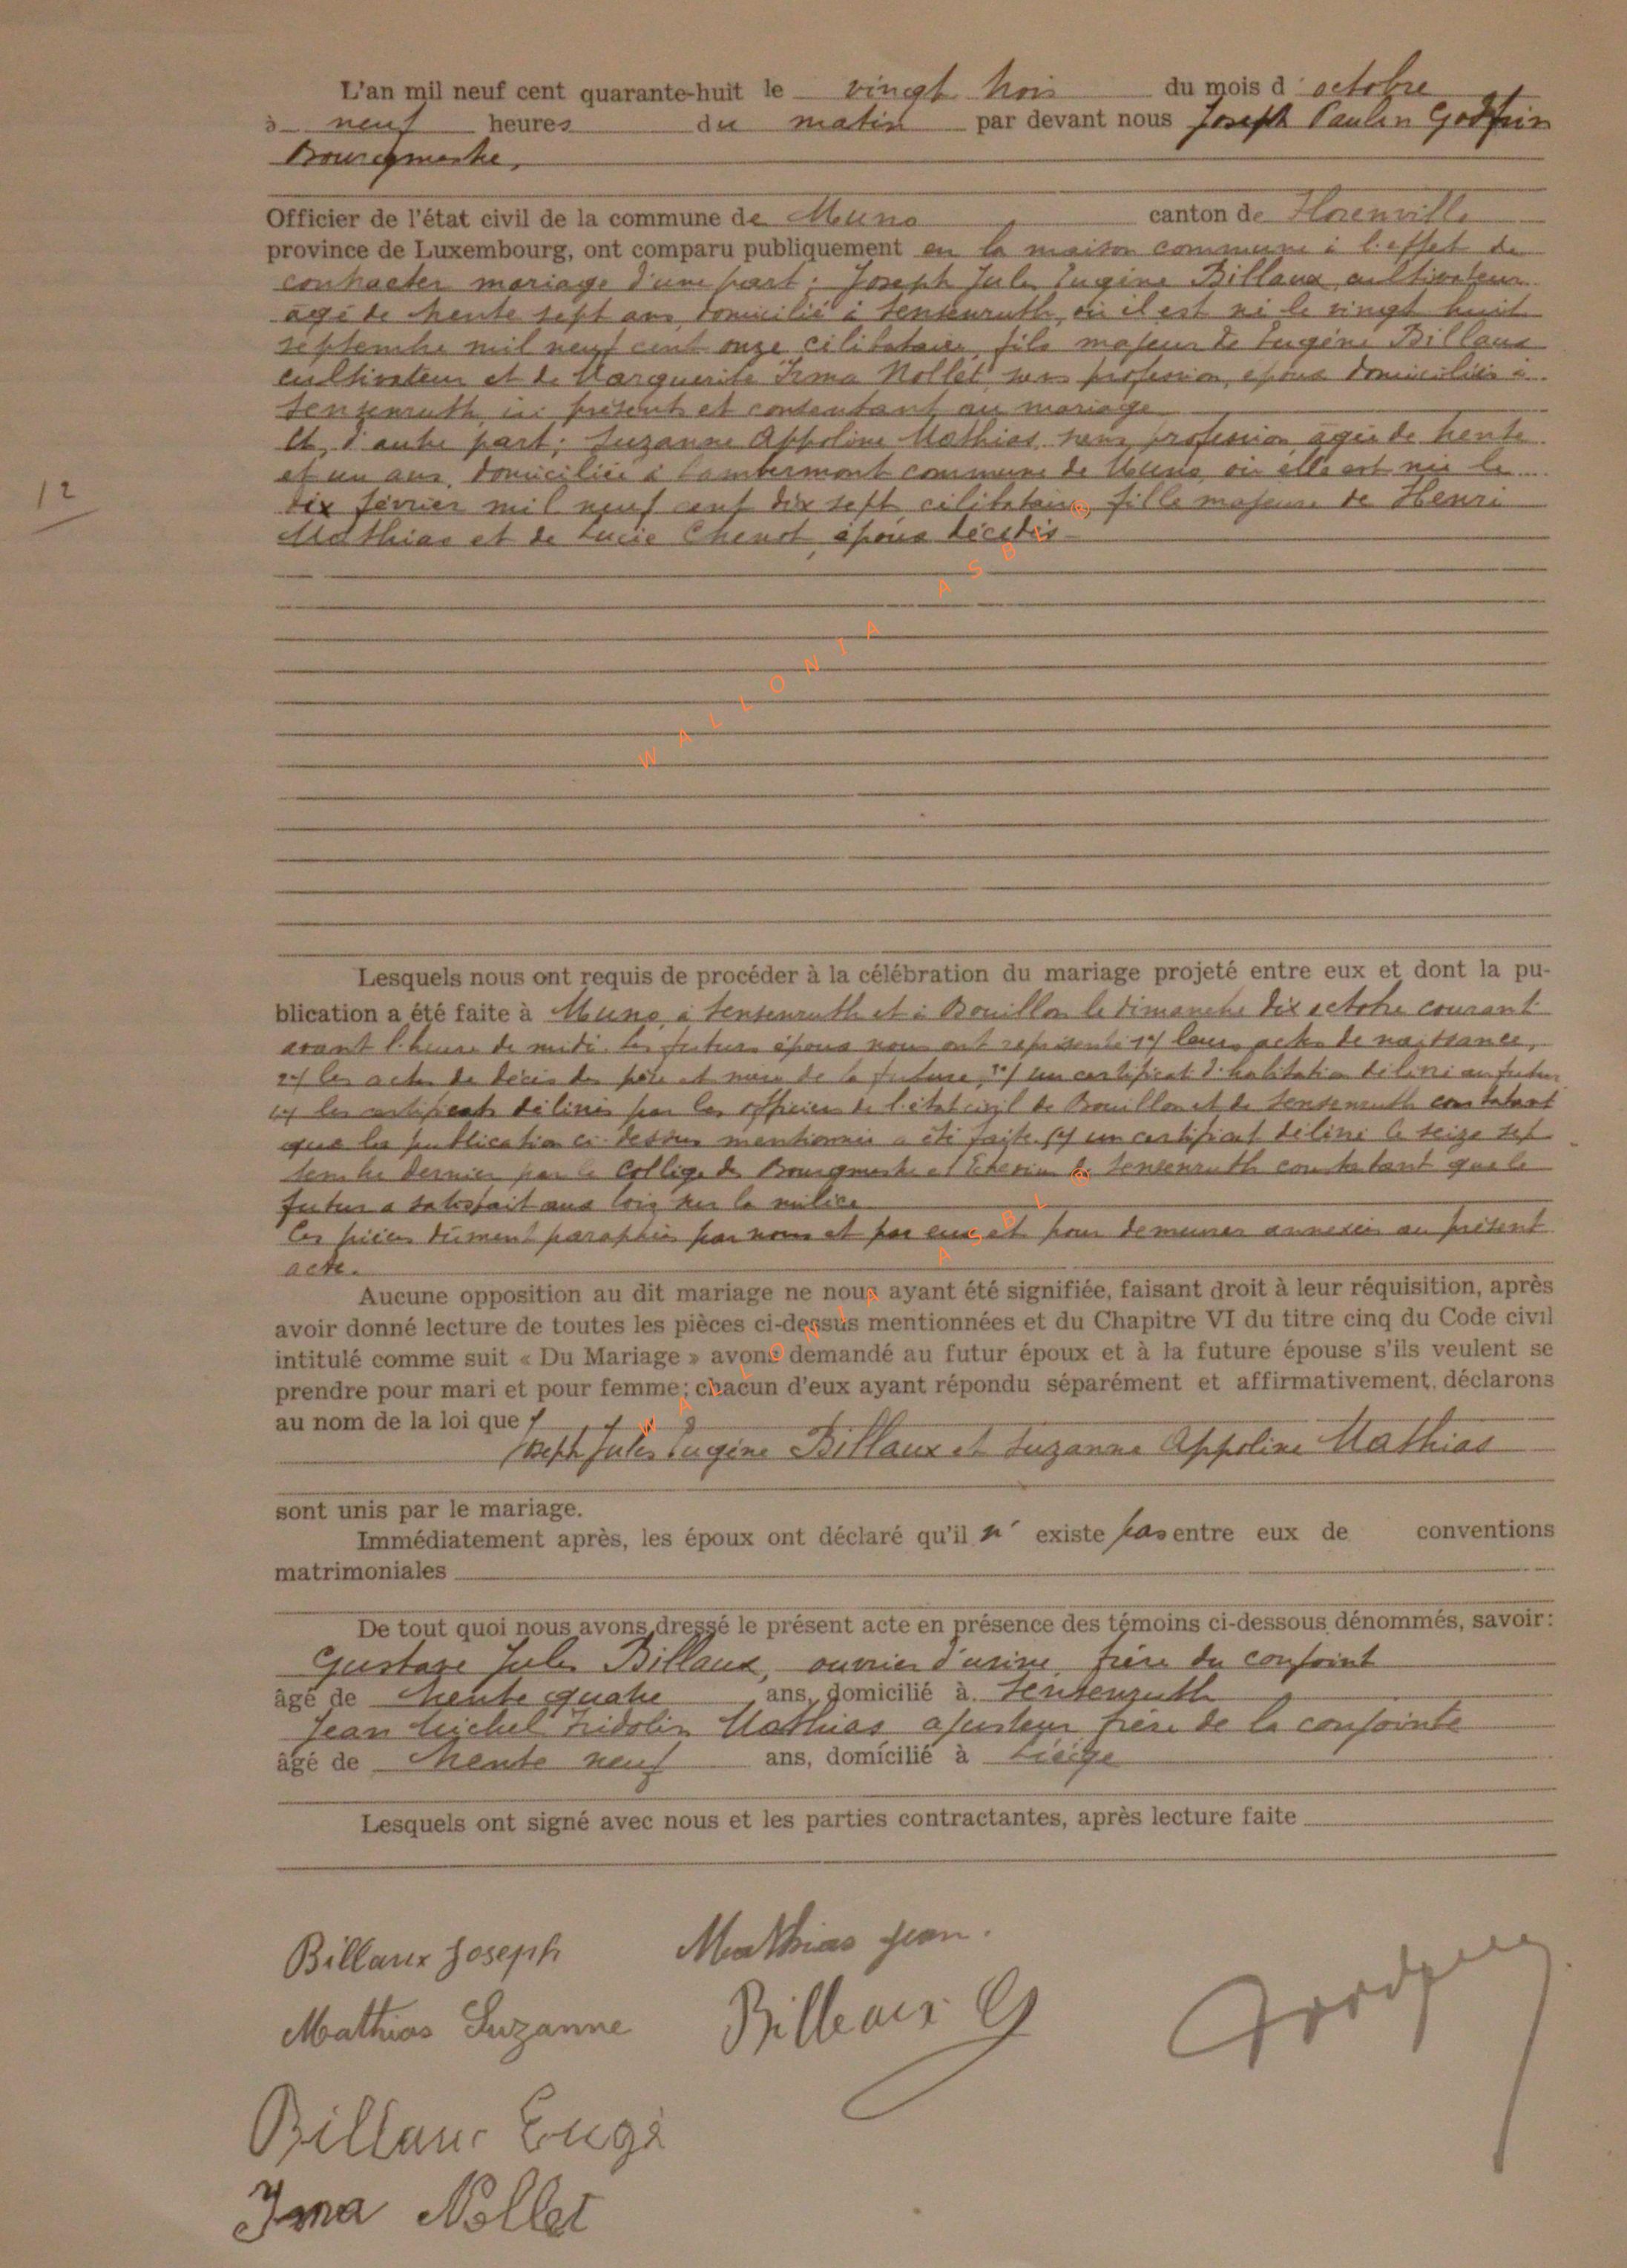 L'an mil neuf cent quarante-huit le vingt trois du mois d'octobre
à neuf heures du matin par devant nous Joseph Paulin Godfrin
Bourgmestre,
Officier de l'état civil de la commune de Muno canton de Florenville
province de Luxembourg, ont comparu publiquement en la maison commune à l'effet de
contracter mariage d'une part: Joseph Jules Eugène Billaux, cultivateur
agé de trente sept ans, domicilié à Sensenruth, où il est né le vingt huit
septembre mil neuf cent onze, célibataire, fils majeur de Eugène Billaux
cultivateur et de Marguerite Irma Nollet, sans profession, époux domiciliés à
Sensenruth, ici présents et consentant au mariage
Et, d'autre part: Suzanne Appoline Mathias, sans profession, agée de trente
et un ans, domiciliée à Lambermont commune de Muno, où elle est née le
12
dix février mil neuf cent dix sept, célibataire, fille majeure de Henri
Mathias et de Lucie Chenot, époux décédés
WALLONIA ASBL ®
Lesquels nous ont requis de procéder à la célébration du mariage projeté entre eux et dont la pu-
blication a été faite à Muno, à Sensenruth et à Bouillon le dimanche dix octobre courant
avant l'heure de midi. Les futurs époux nous ont représenté 1°/ leurs actes de naissance,
2°/ les actes de décès des père et mère de la future, 3°/ un certificat d'habitation délivré au futur
4°/ les certificats délivrés par les officiers de l'état civil de Bouillon et de Sensenruth constatant
que la publication ci-dessus mentionnée a été faite 5°/ un certificat délivré le seize sep
tembre dernier par le Collège des Bourgmestre et Echevins de Sensenruth constatant que le
futur a satisfait aux lois sur la milice
Ces pièces dûment paraphées par nous et par eux, et pour demeurer annexées au présent
acte.
WALLONIA ASBL ®
Aucune opposition au dit mariage ne nous ayant été signifiée, faisant droit à leur réquisition, après
avoir donné lecture de toutes les pièces ci-dessus mentionnées et du Chapitre VI du titre cinq du Code civil
intitulé comme suit « Du Mariage » avons demandé au futur époux et à la future épouse s'ils veulent se
prendre pour mari et pour femme; chacun d'eux ayant répondu séparément et affirmativement, déclarons
au nom de la loi que
Joseph Jules Eugène Billaux et Suzanne Appoline Mathias
sont unis par le mariage.
Immédiatement après, les époux ont déclaré qu'il n' existe pas entre eux de conventions
matrimoniales
De tout quoi nous avons dressé le présent acte en présence des témoins ci-dessous dénommés, savoir:
Gustave Jules Billaux, ouvrier d'usine, frère du conjoint
âgé de trente quatre ans, domicilié à Sensenruth
Jean Michel Fridolin Mathias ajusteur frère de la conjointe
âgé de trente neuf ans, domicilié à Liège
Lesquels ont signé avec nous et les parties contractantes, après lecture faite
Billaux Joseph Mathias Jean.
Mathias Suzanne Billaux G
Billaux Eugè
Irma Nollet